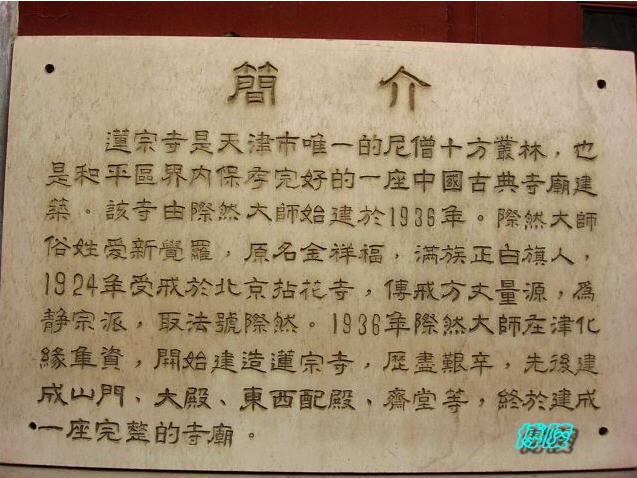 簡 介
蓮宗寺是天津市唯一的尼僧十方叢林，也
是和平區界内保存完好的一座中國古典寺廟建
築。該寺由際然大師始建於1936年。際然大師
俗姓愛新覺羅，原名金祥福，滿族正白旗人，
1924年受戒於北京拈花寺，傳戒方丈量源，爲
静宗派，取法號際然。1936年際然大師在津化
緣集資，開始建造蓮宗寺，歷盡艱辛，先後建
成山門、大殿、東西配殿、齋堂等，終於建成
一座完整的寺廟。